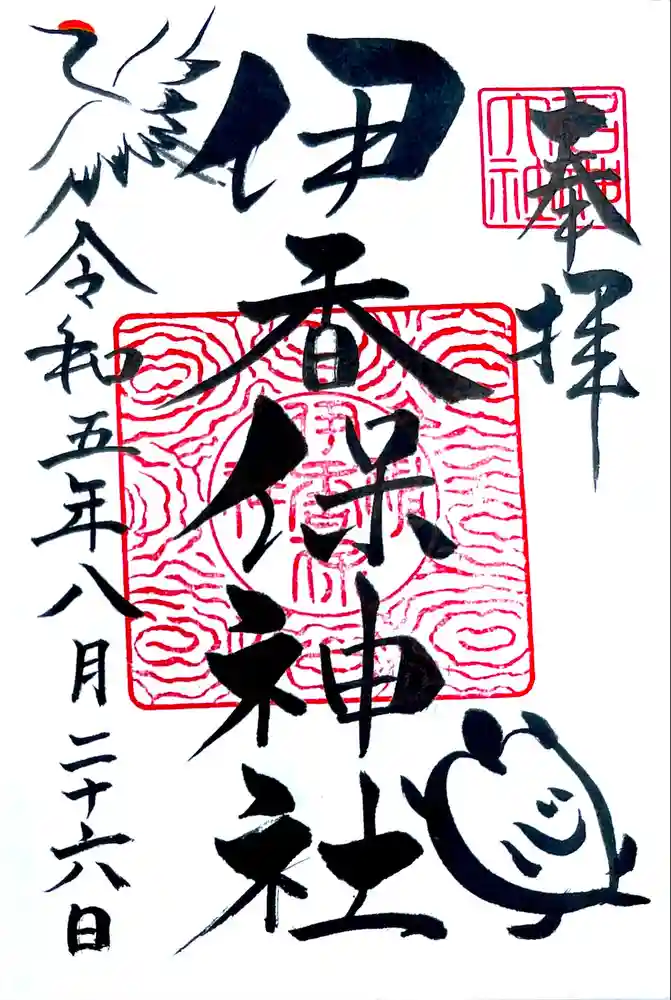 奉拝
伊香保神社
令和五年八月二十六日
心